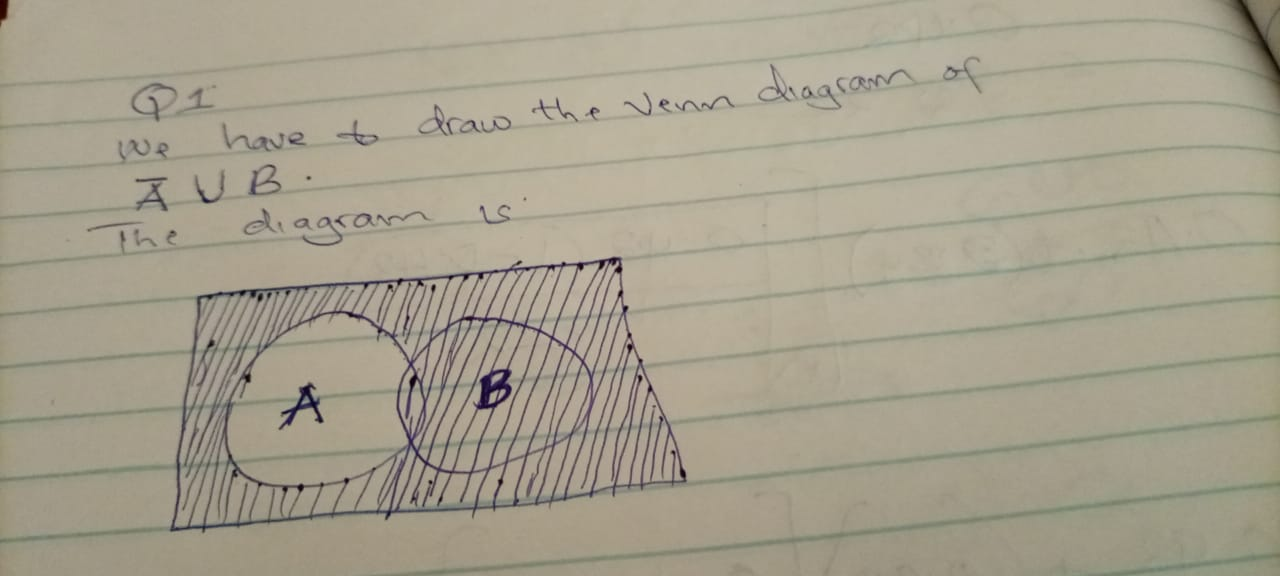 Q1
We have to draw the Venn diagram of
Ā ∪ B.
The diagram is
A
B